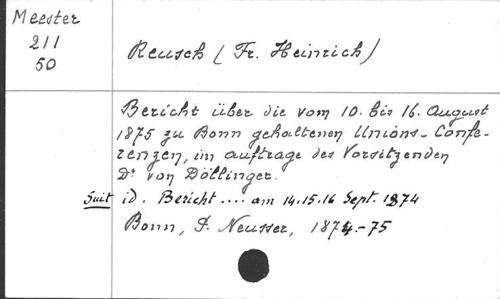 Meester
211
50
Reusch (Fr. Heinrich)
Bericht über die vom 10. bis 16. August
1875 zu Bonn gehaltenen Unions-Confe-
renzen, im auftrage des Vorsitzenden
Dr von Döllinger.
Suit id. Bericht .... am 14.15.16 Sept. 1874
Bonn, P. Neusser, 1874-75